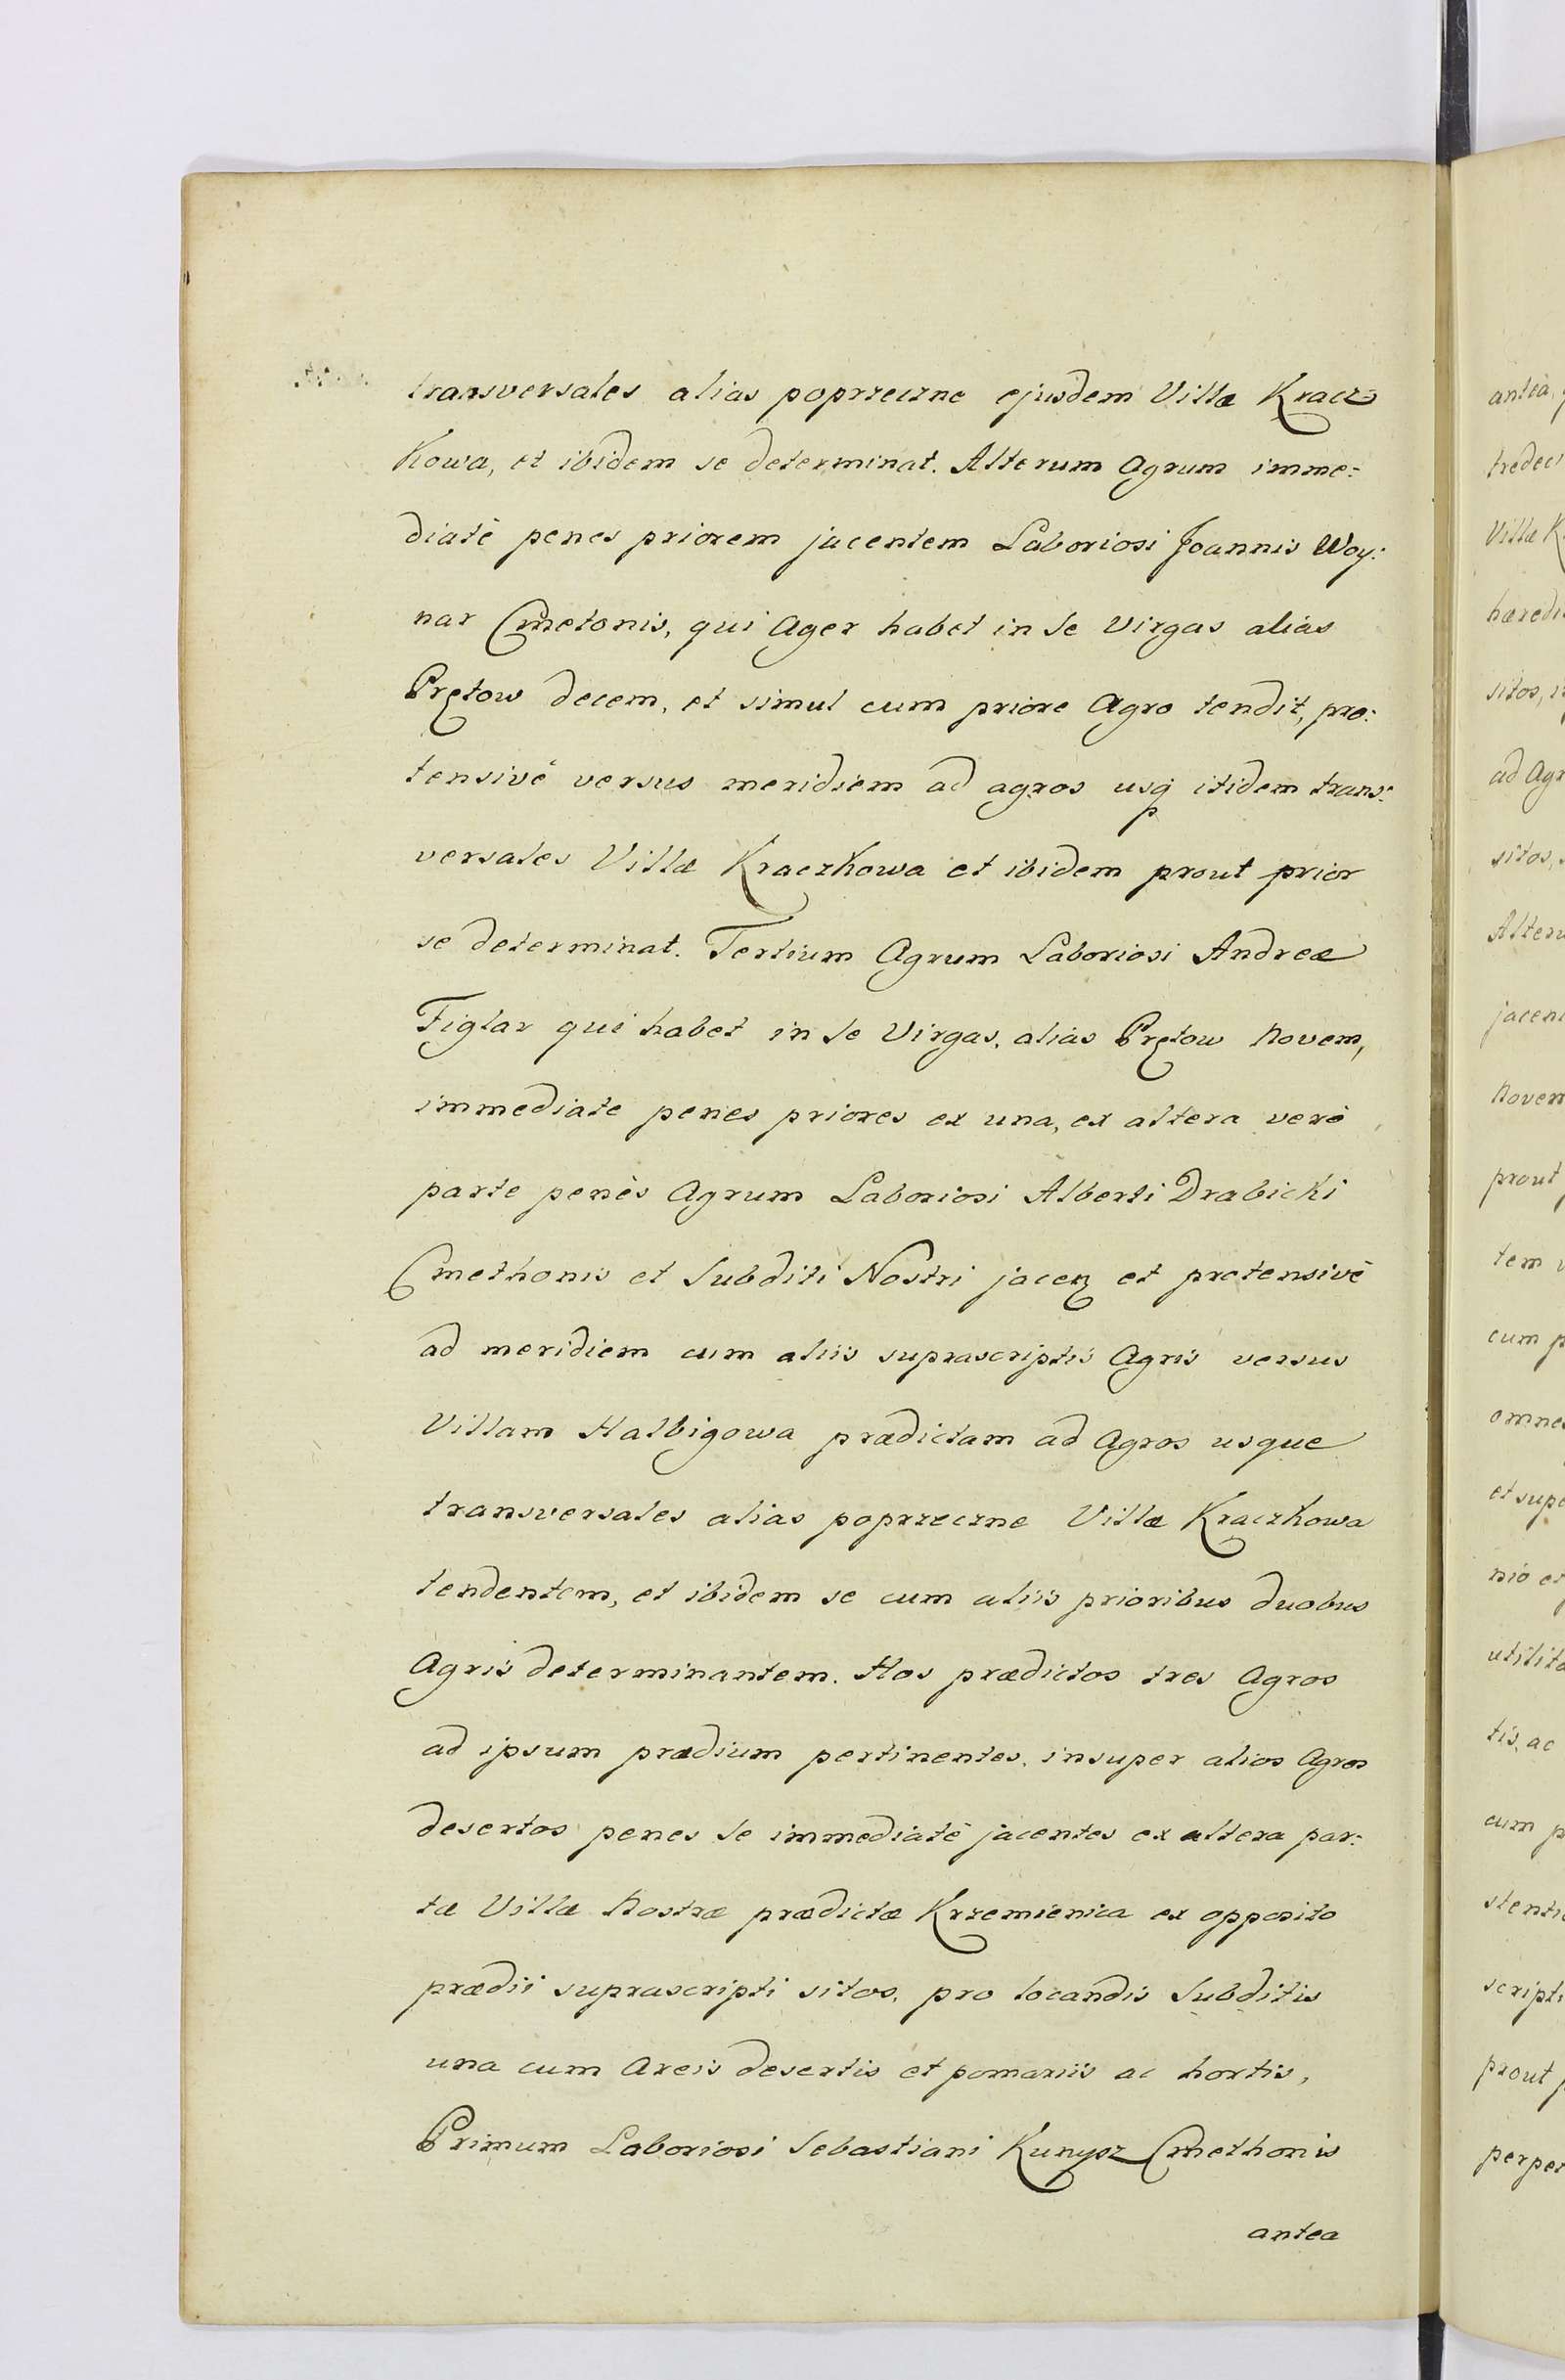 transversales alias poprzeczne ejusdem Villæ Kracz=
kowa, et ibidem se determinat. Alterum Agrum imme=
diatè penes priorem jacentem Laboriosi Joannis Woy:
nar Cmetonis, qui Ager habet in se Virgas alias
Prętow decem, et simul cum priore Agro tendit, pro:
tensivè versus meridiem ad agros usq itidem trans:
versales Villæ Kraczkowa et ibidem prout prior
se determinat. Tertium Agrum Laboriosi Andreæ
Figlar qui habet in se Virgas, alias Prętow Novem,
immediate penes priores ex una, ex altera verò
parte penès Agrum Laboriosi Alberti Drabicki
Cmethonis et Subditi Nostri jacen et protensivè
ad meridiem cum aliis suprascriptis Agris versus
Villam Halbigowa prædictam ad Agros usque
transversales alias poprzeczne Villæ Kraczkowa
tendentem, et ibidem se cum aliis prioribus duobus
Agris determinantem. Hos prædictos tres Agros
ad ipsum prædium pertinentes, insuper alios Agros
desertos penes se immediatè jacentes ex altera par:
tæ Villæ Nostræ prædictæ Krzemienica ex opposito
prædii suprascripti sitos, pro locandis Subditis
una cum Areis desertis et pomariis ac hortis,
Primum Laboriosi Sebastiani Kunysz Cmethonis
antea
antea,
tredeci
Villæ K
hæredi
sitos,
ad Agr
sitos,
Alteru
jacent
Novem
prout
tem
cum p
omnes
et supe
nio et
utilita
tis, ac
cum p
stenti
scripti
prout
perpet